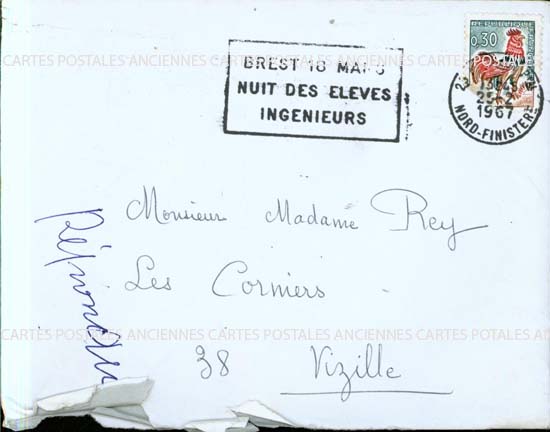 REPUBLIQUE
0,30
POSTES
BREST 18 MARS
NUIT DES ELEVES
INGENIEURS
25-2
1967
NORD-FINISTERE
CARTES POSTALES ANCIENNES CARTES POSTALES ANCIENNES CARTES POSTALE
Monsieur Madame Rey
Les Corniers
38 Vizille
Répondu
CARTES POSTALES ANCIENNES CARTES POSTALES ANCIENNES CARTES POTALES AN